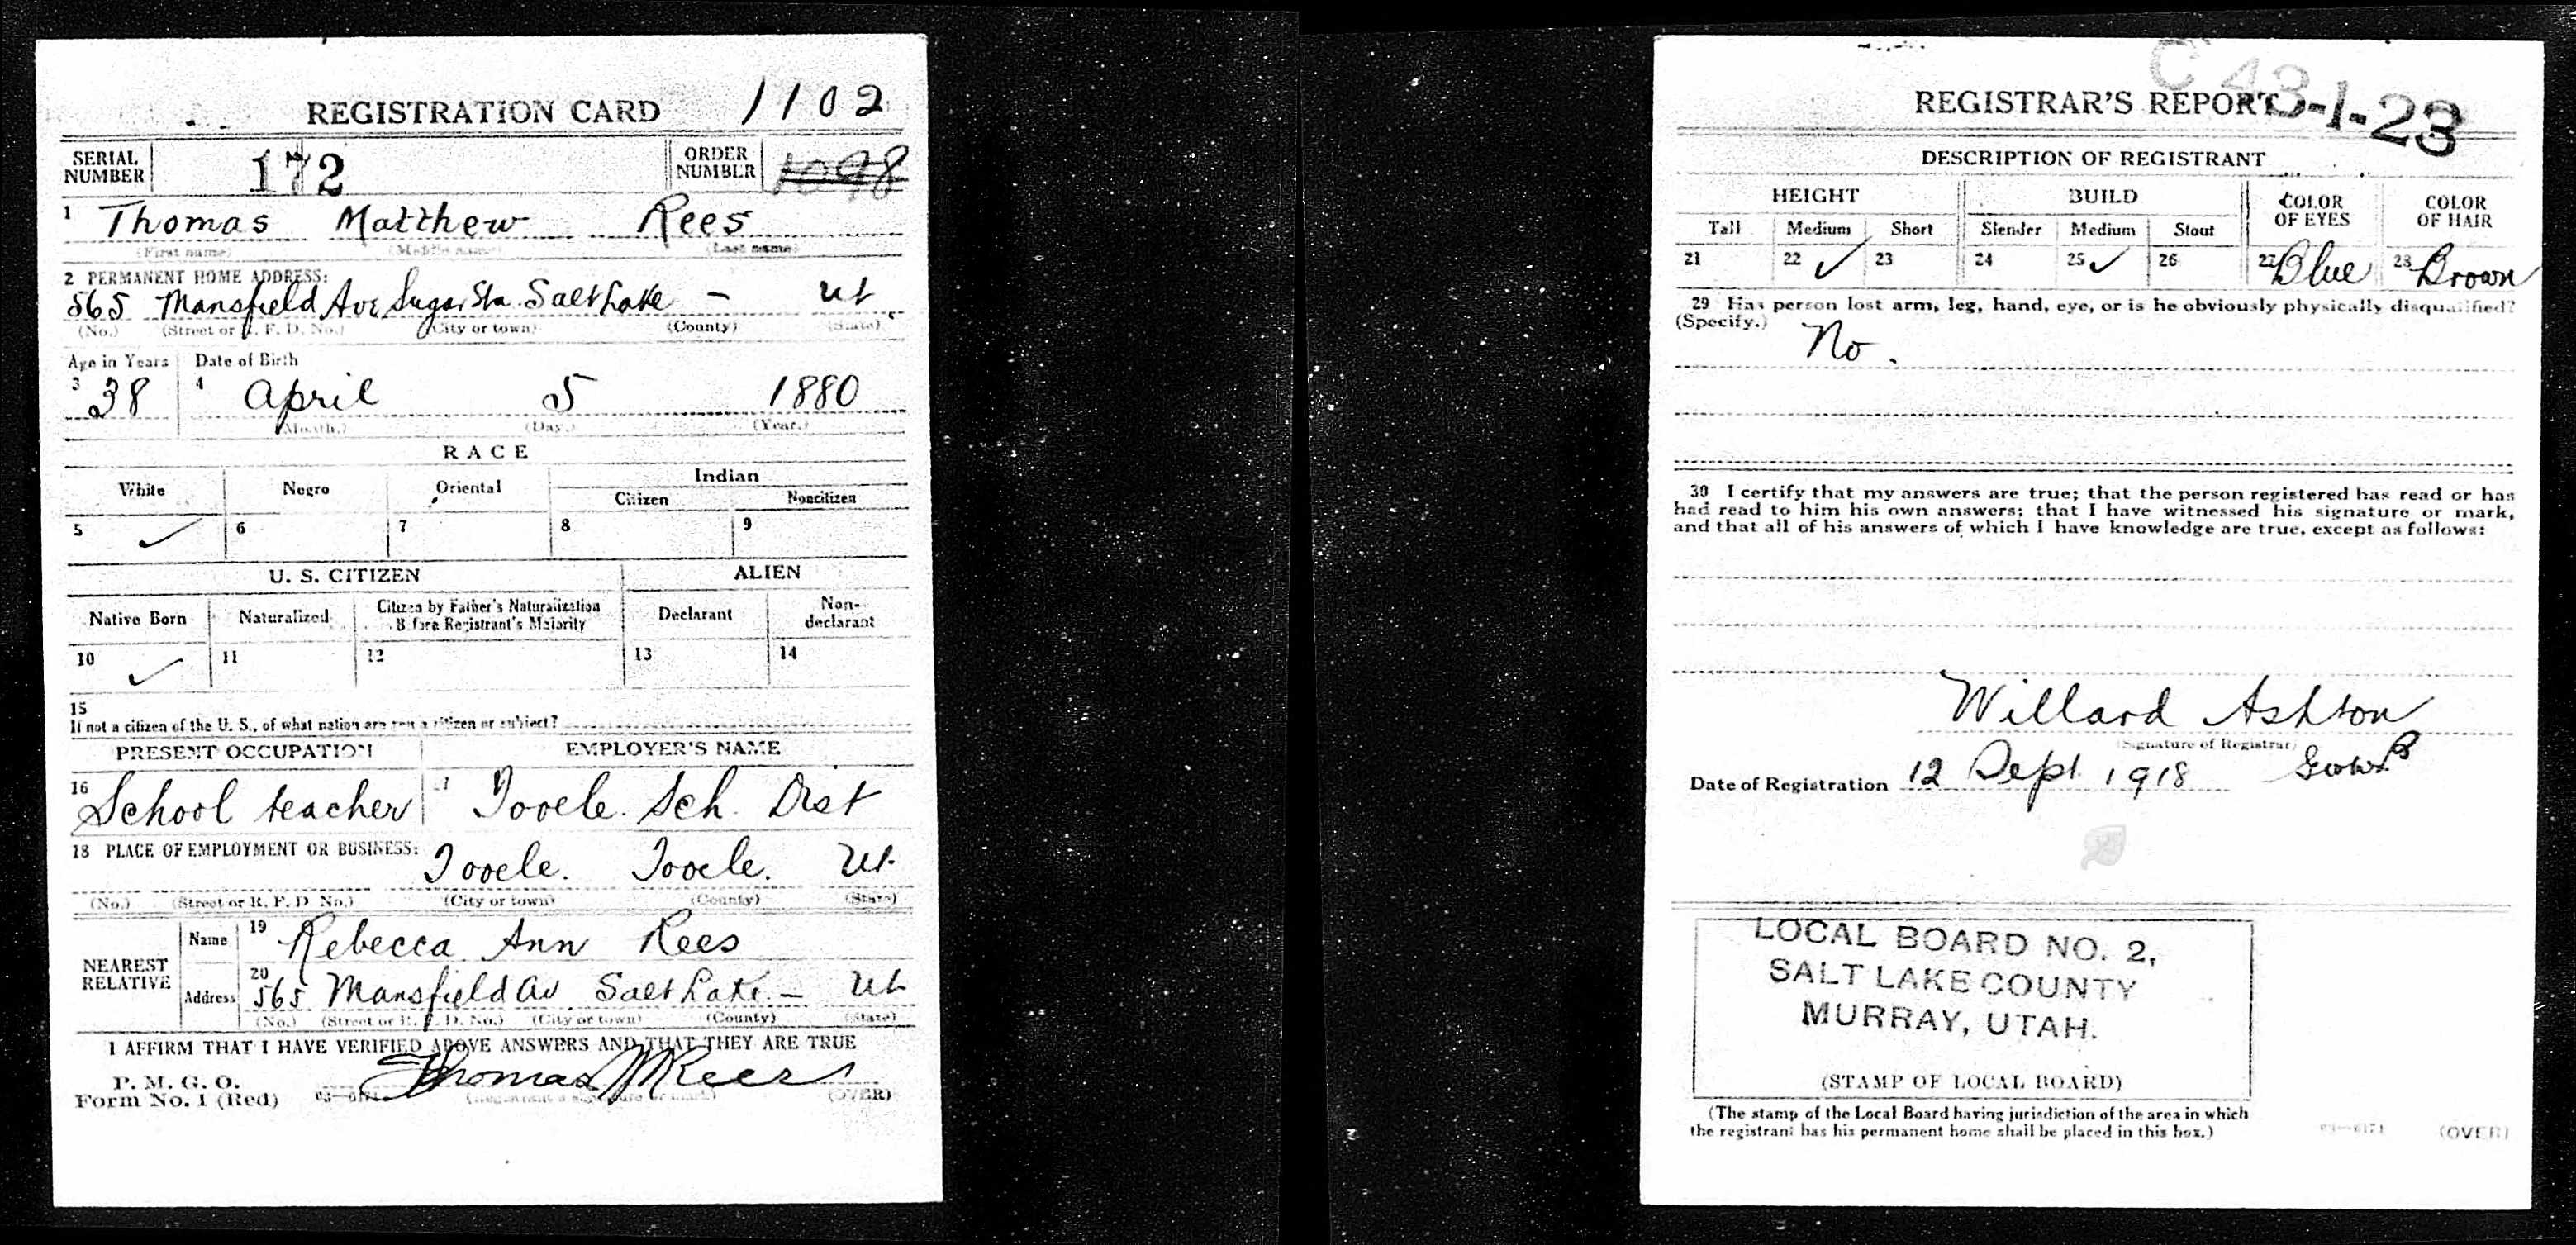 REGISTRATION CARD 1102
SERIAL NUMBER 172 ORDER NUMBER 1098
1 Thomas Matthew Rees
(First name) (Middle name) (Last name)
2 PERMANENT HOME ADDRESS:
565 Mansfield Ave Sugar Sta. Salt Lake - Ut
(No.) (Street or R. F. D. No.) (City or town) (County) (State)
Age in Years Date of Birth
3 38 4 April 5 1880
(Month.) (Day.) (Year.)
RACE
White Negro Oriental Indian
Citizen Noncitizen
5 ✓ 6 7 8 9
U. S. CITIZEN ALIEN
Native Born Naturalized Citizen by Father's Naturalization Before Registrant's Majority Declarant Non-declarant
10 ✓ 11 12 13 14
15
If not a citizen of the U. S., of what nation are you a citizen or subject?
PRESENT OCCUPATION EMPLOYER'S NAME
16 School teacher Tooele. Sch. Dist
18 PLACE OF EMPLOYMENT OR BUSINESS:
Tooele. Tooele. Ut.
(No.) (Street or R. F. D. No.) (City or town) (County) (State)
NEAREST RELATIVE
Name 19 Rebecca Ann Rees
Address 20 565 Mansfield Av Salt Lake. - Ut
(No.) (Street or R. F. D. No.) (City or town) (County) (State)
I AFFIRM THAT I HAVE VERIFIED ABOVE ANSWERS AND THAT THEY ARE TRUE
P. M. G. O.
Form No. 1 (Red) Thomas M Rees
(Registrant's signature or mark) (OVER)
C 43-1-23
REGISTRAR'S REPORT
DESCRIPTION OF REGISTRANT
HEIGHT BUILD COLOR OF EYES COLOR OF HAIR
Tall Medium Short Slender Medium Stout
21 22 ✓ 23 24 25 ✓ 26 27 Blue 28 Brown
29 Has person lost arm, leg, hand, eye, or is he obviously physically disqualified?
(Specify.) No.
30 I certify that my answers are true; that the person registered has read or has
had read to him his own answers; that I have witnessed his signature or mark,
and that all of his answers of which I have knowledge are true, except as follows:
Willard Ashton
(Signature of Registrar)
Date of Registration 12 Sept. 1918
LOCAL BOARD NO. 2,
SALT LAKE COUNTY
MURRAY, UTAH.
(STAMP OF LOCAL BOARD)
(The stamp of the Local Board having jurisdiction of the area in which
the registrant has his permanent home shall be placed in this box.)
03—6171 (OVER)